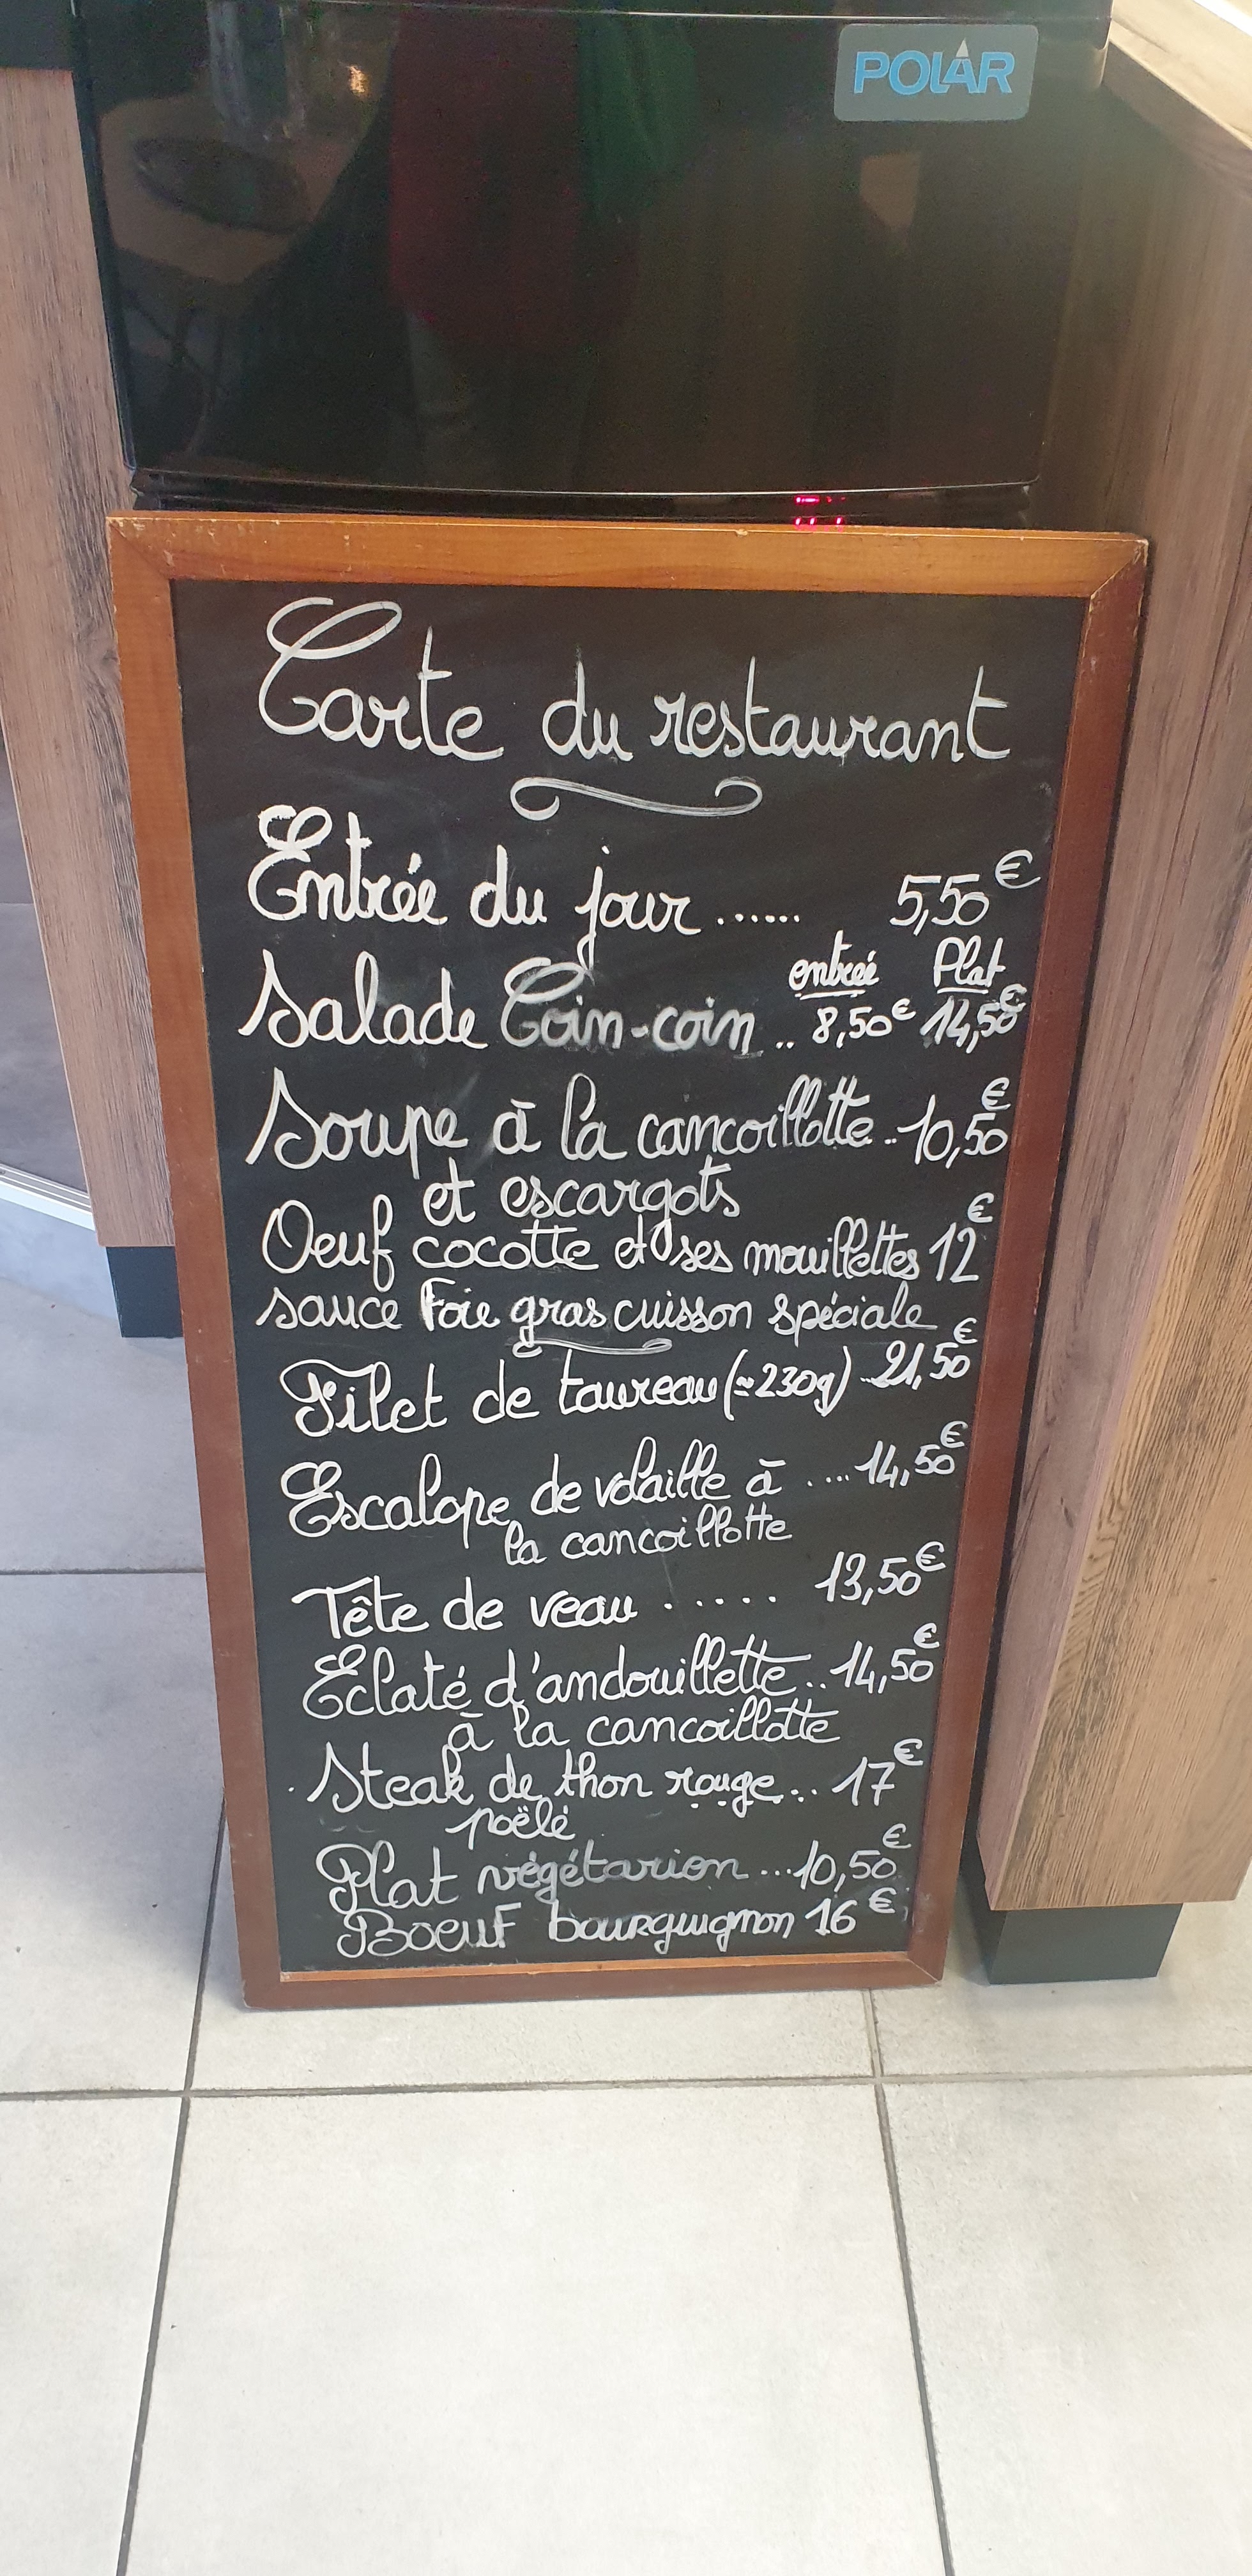 POLAR
Carte du restaurant
Entrée du jour ...... 5,50€
entrée Plat
Salade Coin-coin .. 8,50€ 14,50€
Soupe à la cancoillotte .. 10,50€
et escargots
Oeuf cocotte et ses mouillettes 12€
sauce Foie gras cuisson spéciale
Filet de taureau (≃230g) .. 21,50€
Escalope de volaille à .... 14,50€
la cancoillotte
Tête de veau ...... 13,50€
Eclaté d'andouillette .. 14,50€
à la cancoillotte
Steak de thon rouge... 17€
poëlé
Plat végétarien ... 10,50€
Boeuf bourguignon 16€